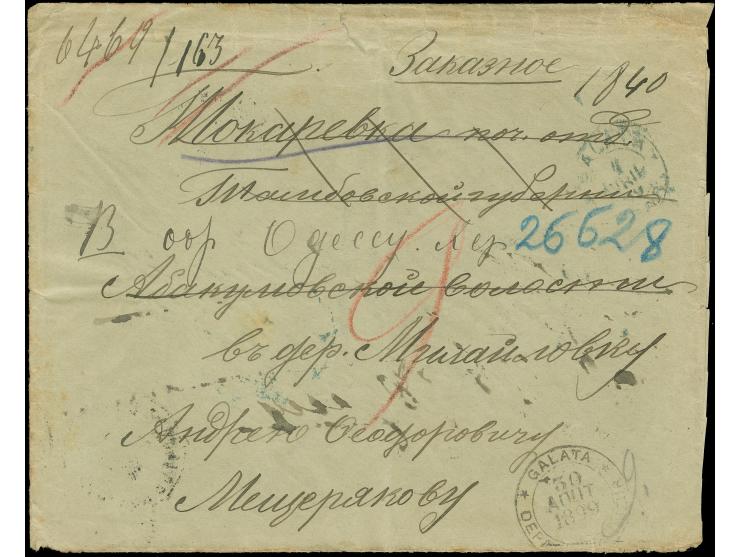 6469 / 163
Заказное
1840
Токаревка поч. отд.
Тамбовской губернии
В обр Одессу. пер
26628
Абакумовской волости
9
въ дер. Михайловку
Андрею Ѳеодоровичу
Мещерякову
GALATA
30
AOUT
1899